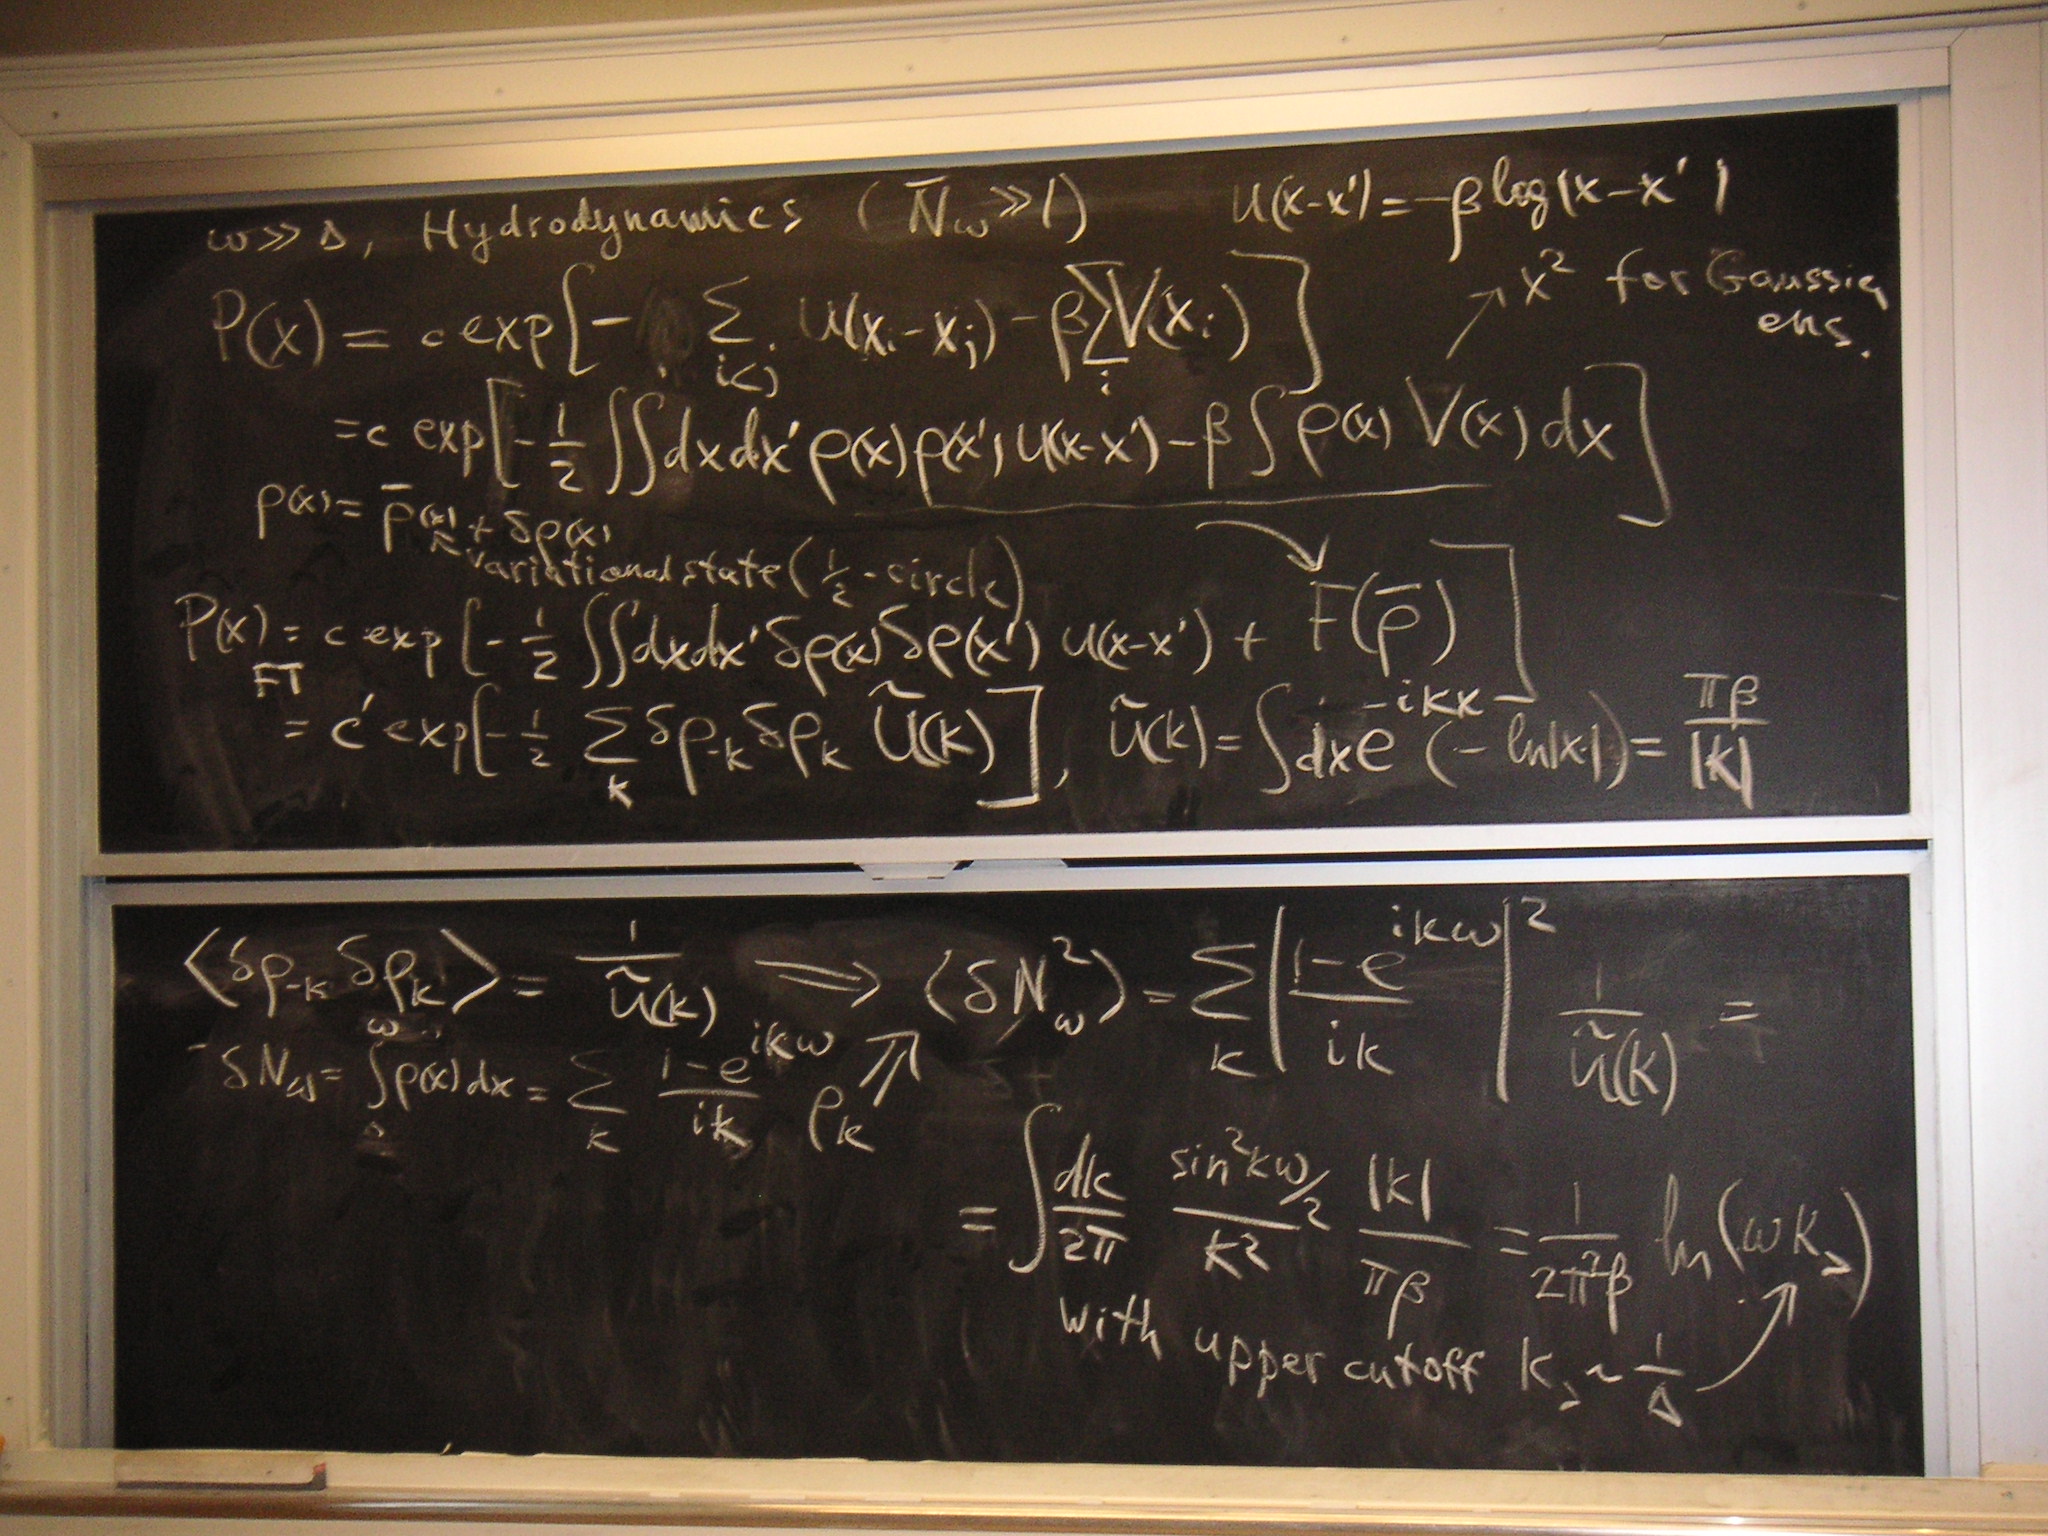 ω >> Δ, Hydrodynamics ( N̄_ω >> 1 )   U(x-x') = -β log|x-x'|
P(x) = c exp[ - Σ_{i<j} U(x_i - x_j) - β Σ_i V(x_i) ]   ↗ x² for Gaussian ens.
= c exp[ -1/2 ∫∫ dx dx' ρ(x) ρ(x') U(x-x') - β ∫ ρ(x) V(x) dx ]
ρ(x) = ρ̄(x) + δρ(x)
variational state (1/2-circle)
P(x) = c exp [ -1/2 ∫∫ dx dx' δρ(x) δρ(x') U(x-x') + F(ρ̄) ]
FT
= c' exp[ -1/2 Σ_k δρ_{-k} δρ_k Ũ(k) ], Ũ(k) = ∫ dx e^{-ikx} (-ln|x|) = πβ/|k|
<δρ_{-k} δρ_k> = 1/Ũ(k) ⟹ <δN_ω²> = Σ_k |(1-e^{ikω})/ik|² 1/Ũ(k) =
δN_ω = ∫_0^ω ρ(x) dx = Σ_k (1-e^{ikω})/ik ρ_k
= ∫ dk/2π sin²kω/2 / k² |k|/πβ = 1/2π²β ln(ω k_>)
with upper cutoff k_> ~ 1/Δ